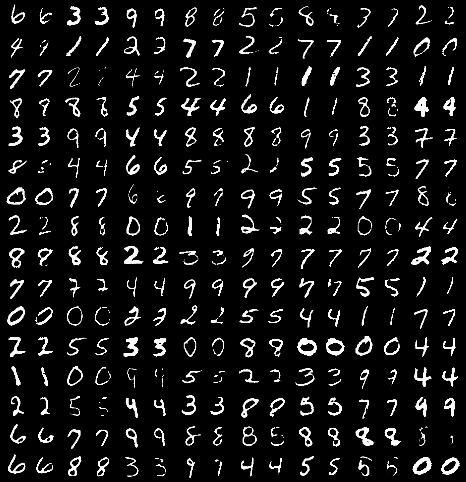 6 6 3 3 9 9 8 8 5 5 8 8 3 7 2 2
4 9 1 1 2 2 7 7 2 2 7 7 1 1 0 0
7 7 2 4 4 2 2 1 1 1 1 3 3 1 1
8 9 8 8 5 5 4 4 6 6 1 1 8 8 4 4
3 3 9 9 4 4 8 8 8 8 9 9 3 3 7 7
8 4 4 6 6 5 5 2 5 5 5 5 7 7
0 0 7 7 6 9 9 9 9 5 5 7 7 8
2 2 8 8 0 0 1 1 2 2 2 2 0 0 4 4
8 8 8 8 2 2 3 3 9 7 7 7 7 7 2 2
7 7 7 7 4 4 9 9 9 9 7 7 5 5 1 1
0 0 0 0 2 2 2 2 5 5 4 4 1 1 7 7
2 2 5 5 3 3 0 0 8 8 0 0 0 0 4 4
1 1 0 0 9 9 5 5 2 2 3 3 9 7 4 4
2 2 5 5 4 4 3 3 8 8 5 5 7 7 9 9
6 6 7 7 9 9 8 8 8 5 8 8 8 8 8
6 6 8 8 3 3 9 7 4 4 5 5 5 5 0 0